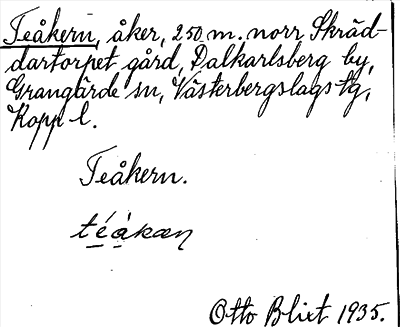 Teåkern, åker, 250 m. norr Skräd-
dartorpet gård, Dalkarlsberg by,
Grangärde sn, Västerbergslags tg,
Kopp. l.
Teåkern.
téåkæn
Otto Blixt 1935.